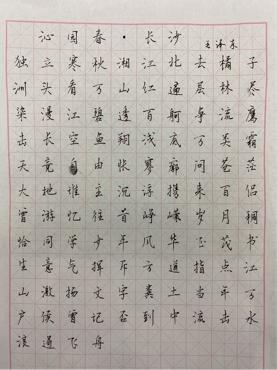 沁园春·长沙
毛泽东
独立寒秋湘江北去橘子
洲头看万山红遍层林尽
染漫江碧透百舸争流鹰
击长空鱼翔浅底万类霜
天竞自由怅寥廓问苍茫
大地谁主沉浮携来百侣
曾游忆往昔峥嵘岁月稠
恰同学少年风华正茂书
生意气挥斥方遒指点江
山激扬文字粪土当年万
户侯曾记否到中流击水
浪遏飞舟